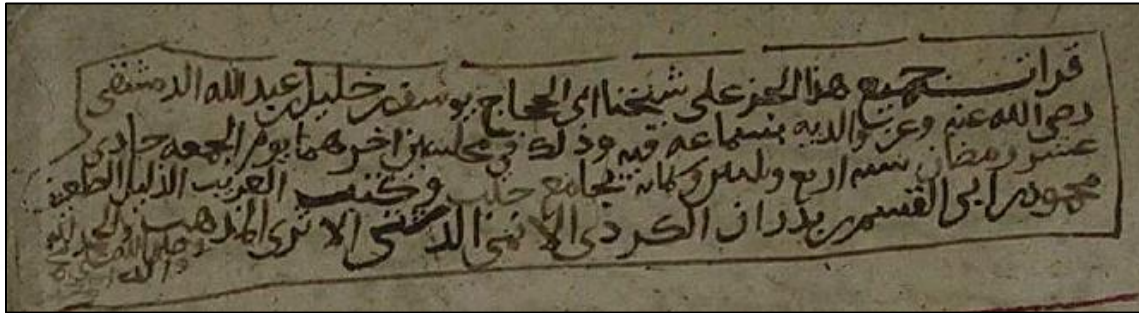 قرات جميع هذا الجز على شيخنا ابى الحجاج يوسف بن خليل بن عبد الله الدمشقى
رضى الله عنه وعن والديه بسماعه فيه وذلك فى مجلسين اخرهما يوم الجمعه حادى
عشر رمضان سنه اربع وثلثين وكان بجامع حلب وكتب العبد الذليل
محمود بن ابى القسم بن بدران الكردى الدشتى الاثرى المذهب والحمد لله